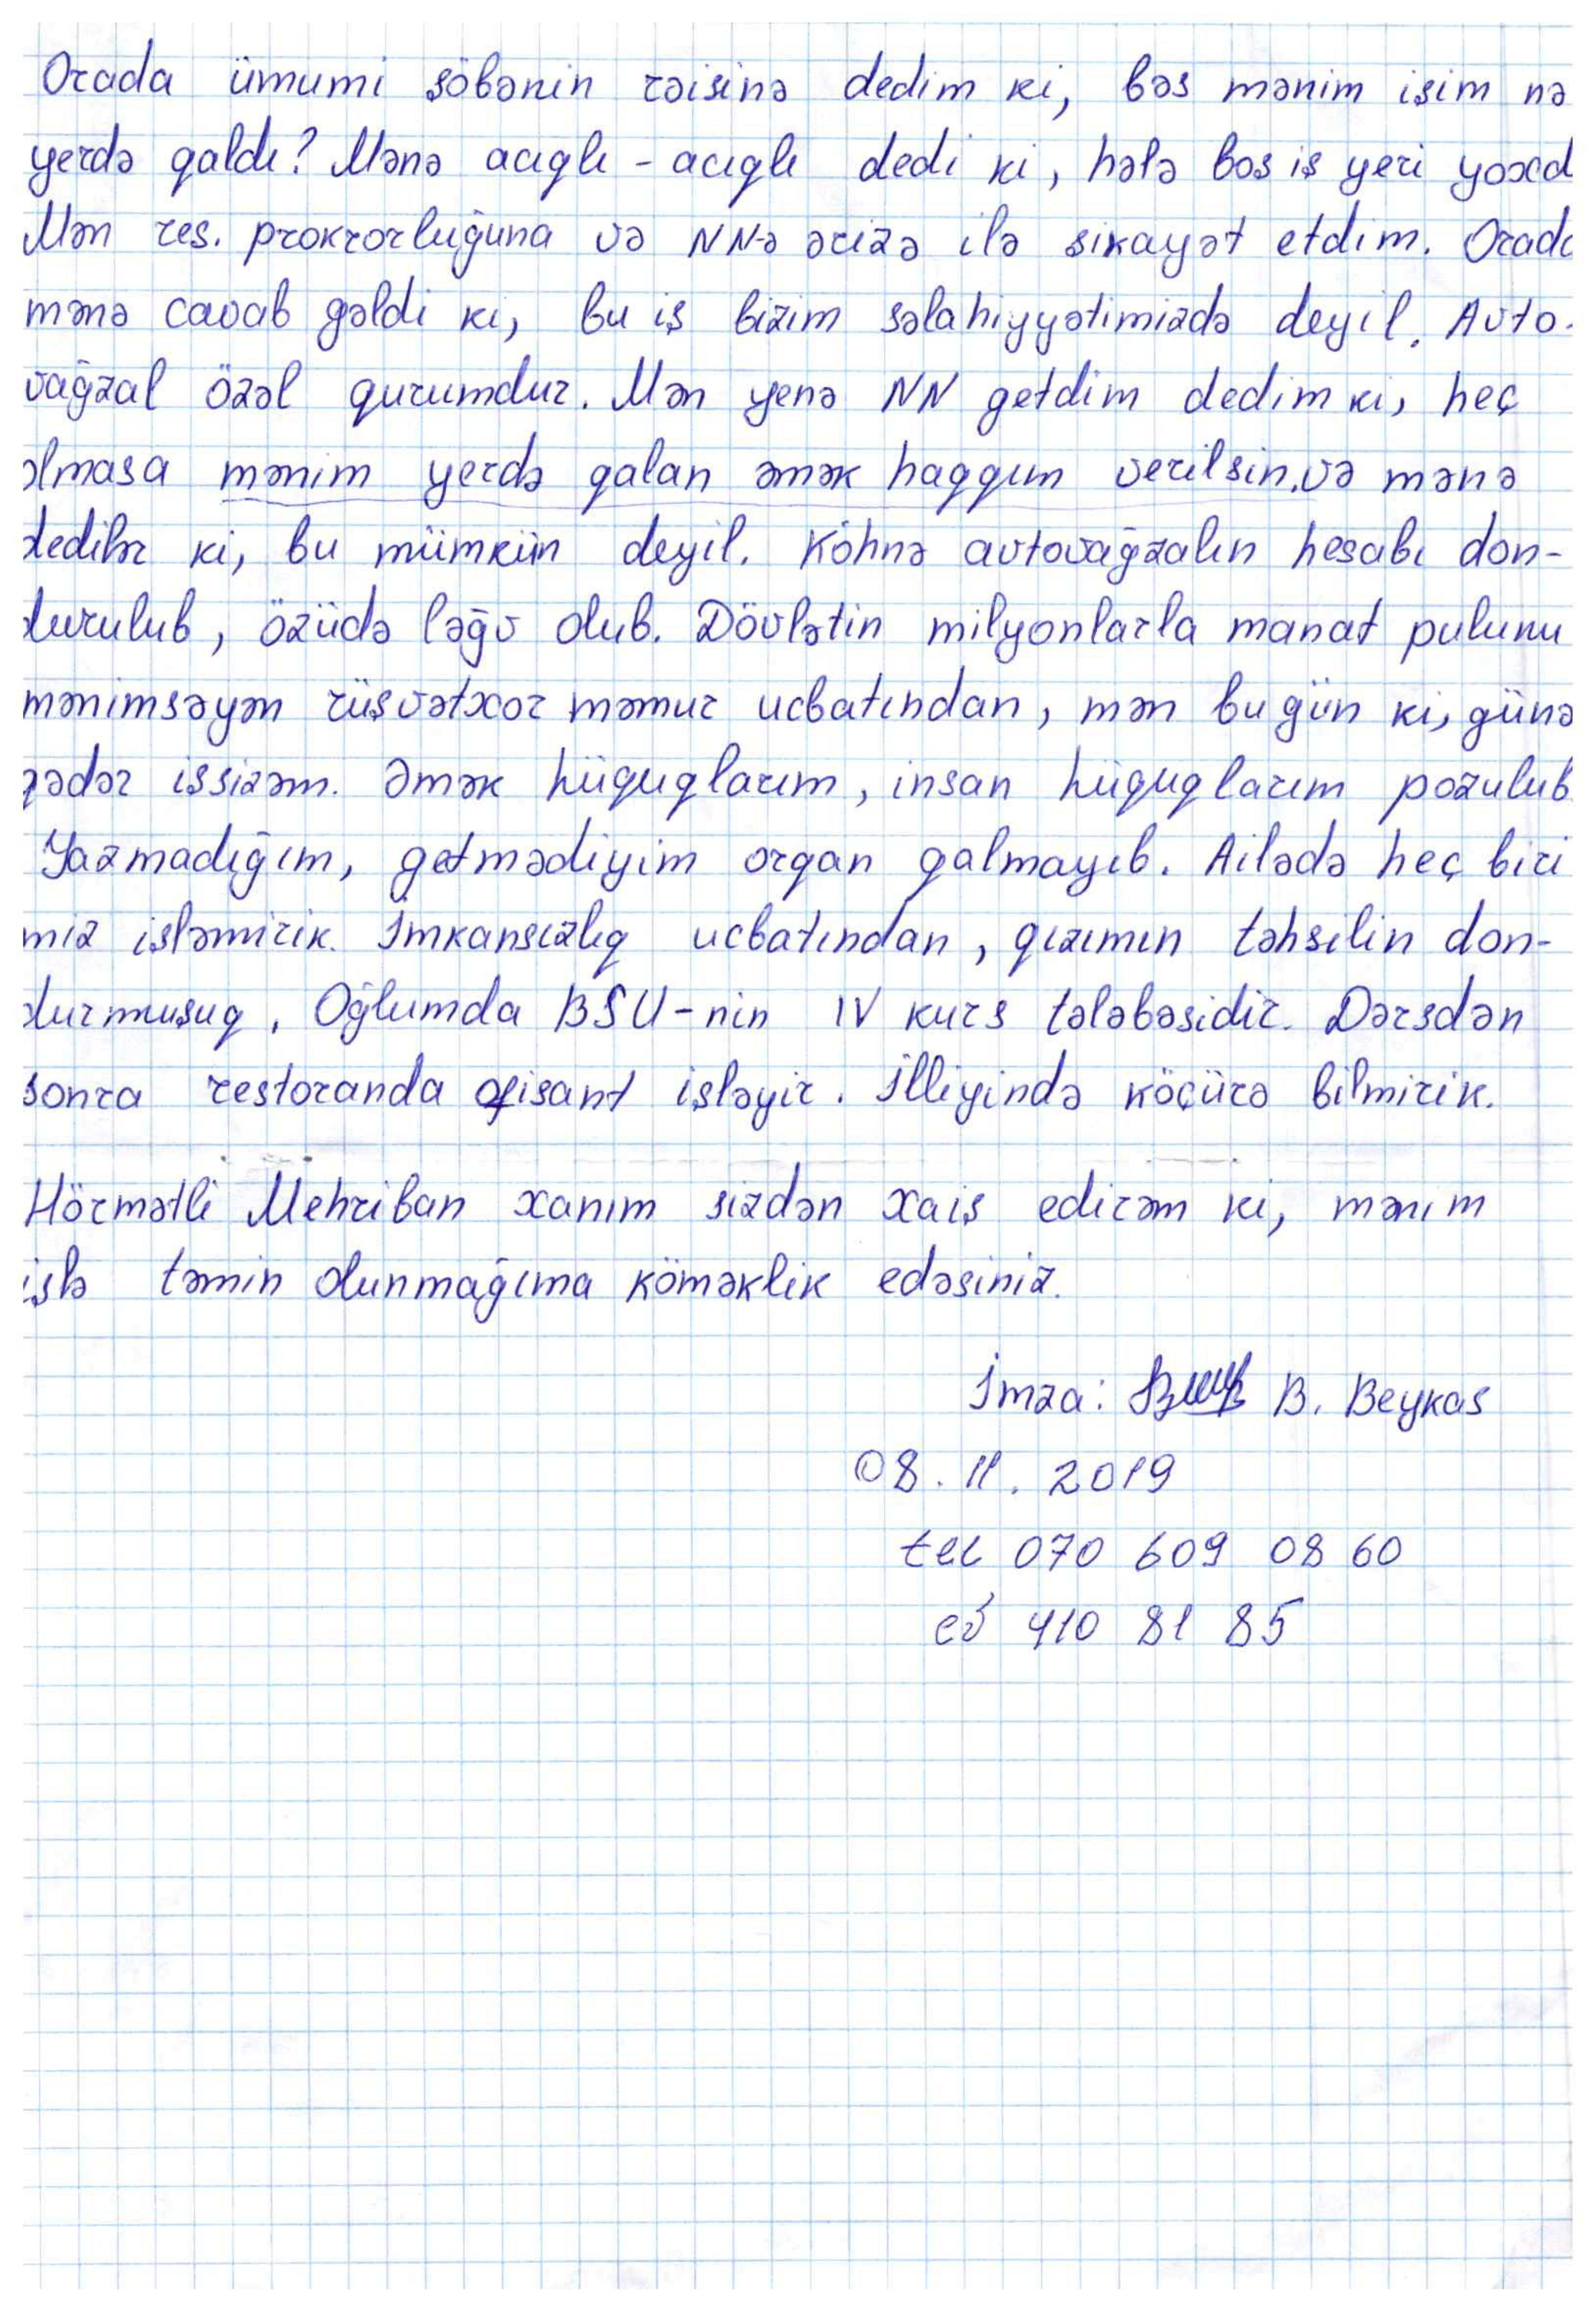 Orada ümumi şöbənin rəisinə dedim ki, bəs mənim işim nə
yerdə qaldı? Mənə acıqlı - acıqlı dedi ki, hələ bos iş yeri yoxd
Mən res. prokrorluğuna və NN-ə ərizə ilə şikayət etdim. Orada
mənə cavab gəldi ki, bu iş bizim səlahiyyətimizdə deyil. Avto-
vağzal özəl qurumdur. Mən yenə NN getdim dedim ki, heç
olmasa mənim yerdə qalan əmək haqqım verilsin və mənə
dedilər ki, bu mümkün deyil. Köhnə avtovağzalın hesabı don-
durulub, özüdə ləğv olub. Dövlətin milyonlarla manat pulunu
mənimsəyən rüşvətxor məmur ucbatından, mən bu gün ki, günə
qədər issizəm. Əmək hüquqlarım, insan hüquqlarım pozulub
Yazmadığım, getmədiyim orqan qalmayıb. Ailədə heç biri
miz isləmirik. İmkansızlıq ucbatından, qızımın təhsilin don-
durmuşuq. Oğlumda BSU-nin IV kurs tələbəsidir. Dərsdən
sonra restoranda ofisant işləyir. İlliyində köçürə bilmirik.
Hörmətli Mehriban xanım sizdən xais edirəm ki, mənim
işlə təmin olunmağıma köməklik edəsiniz.
İmza: B. Beykas
08.11.2019
tel 070 609 08 60
ev 410 81 85